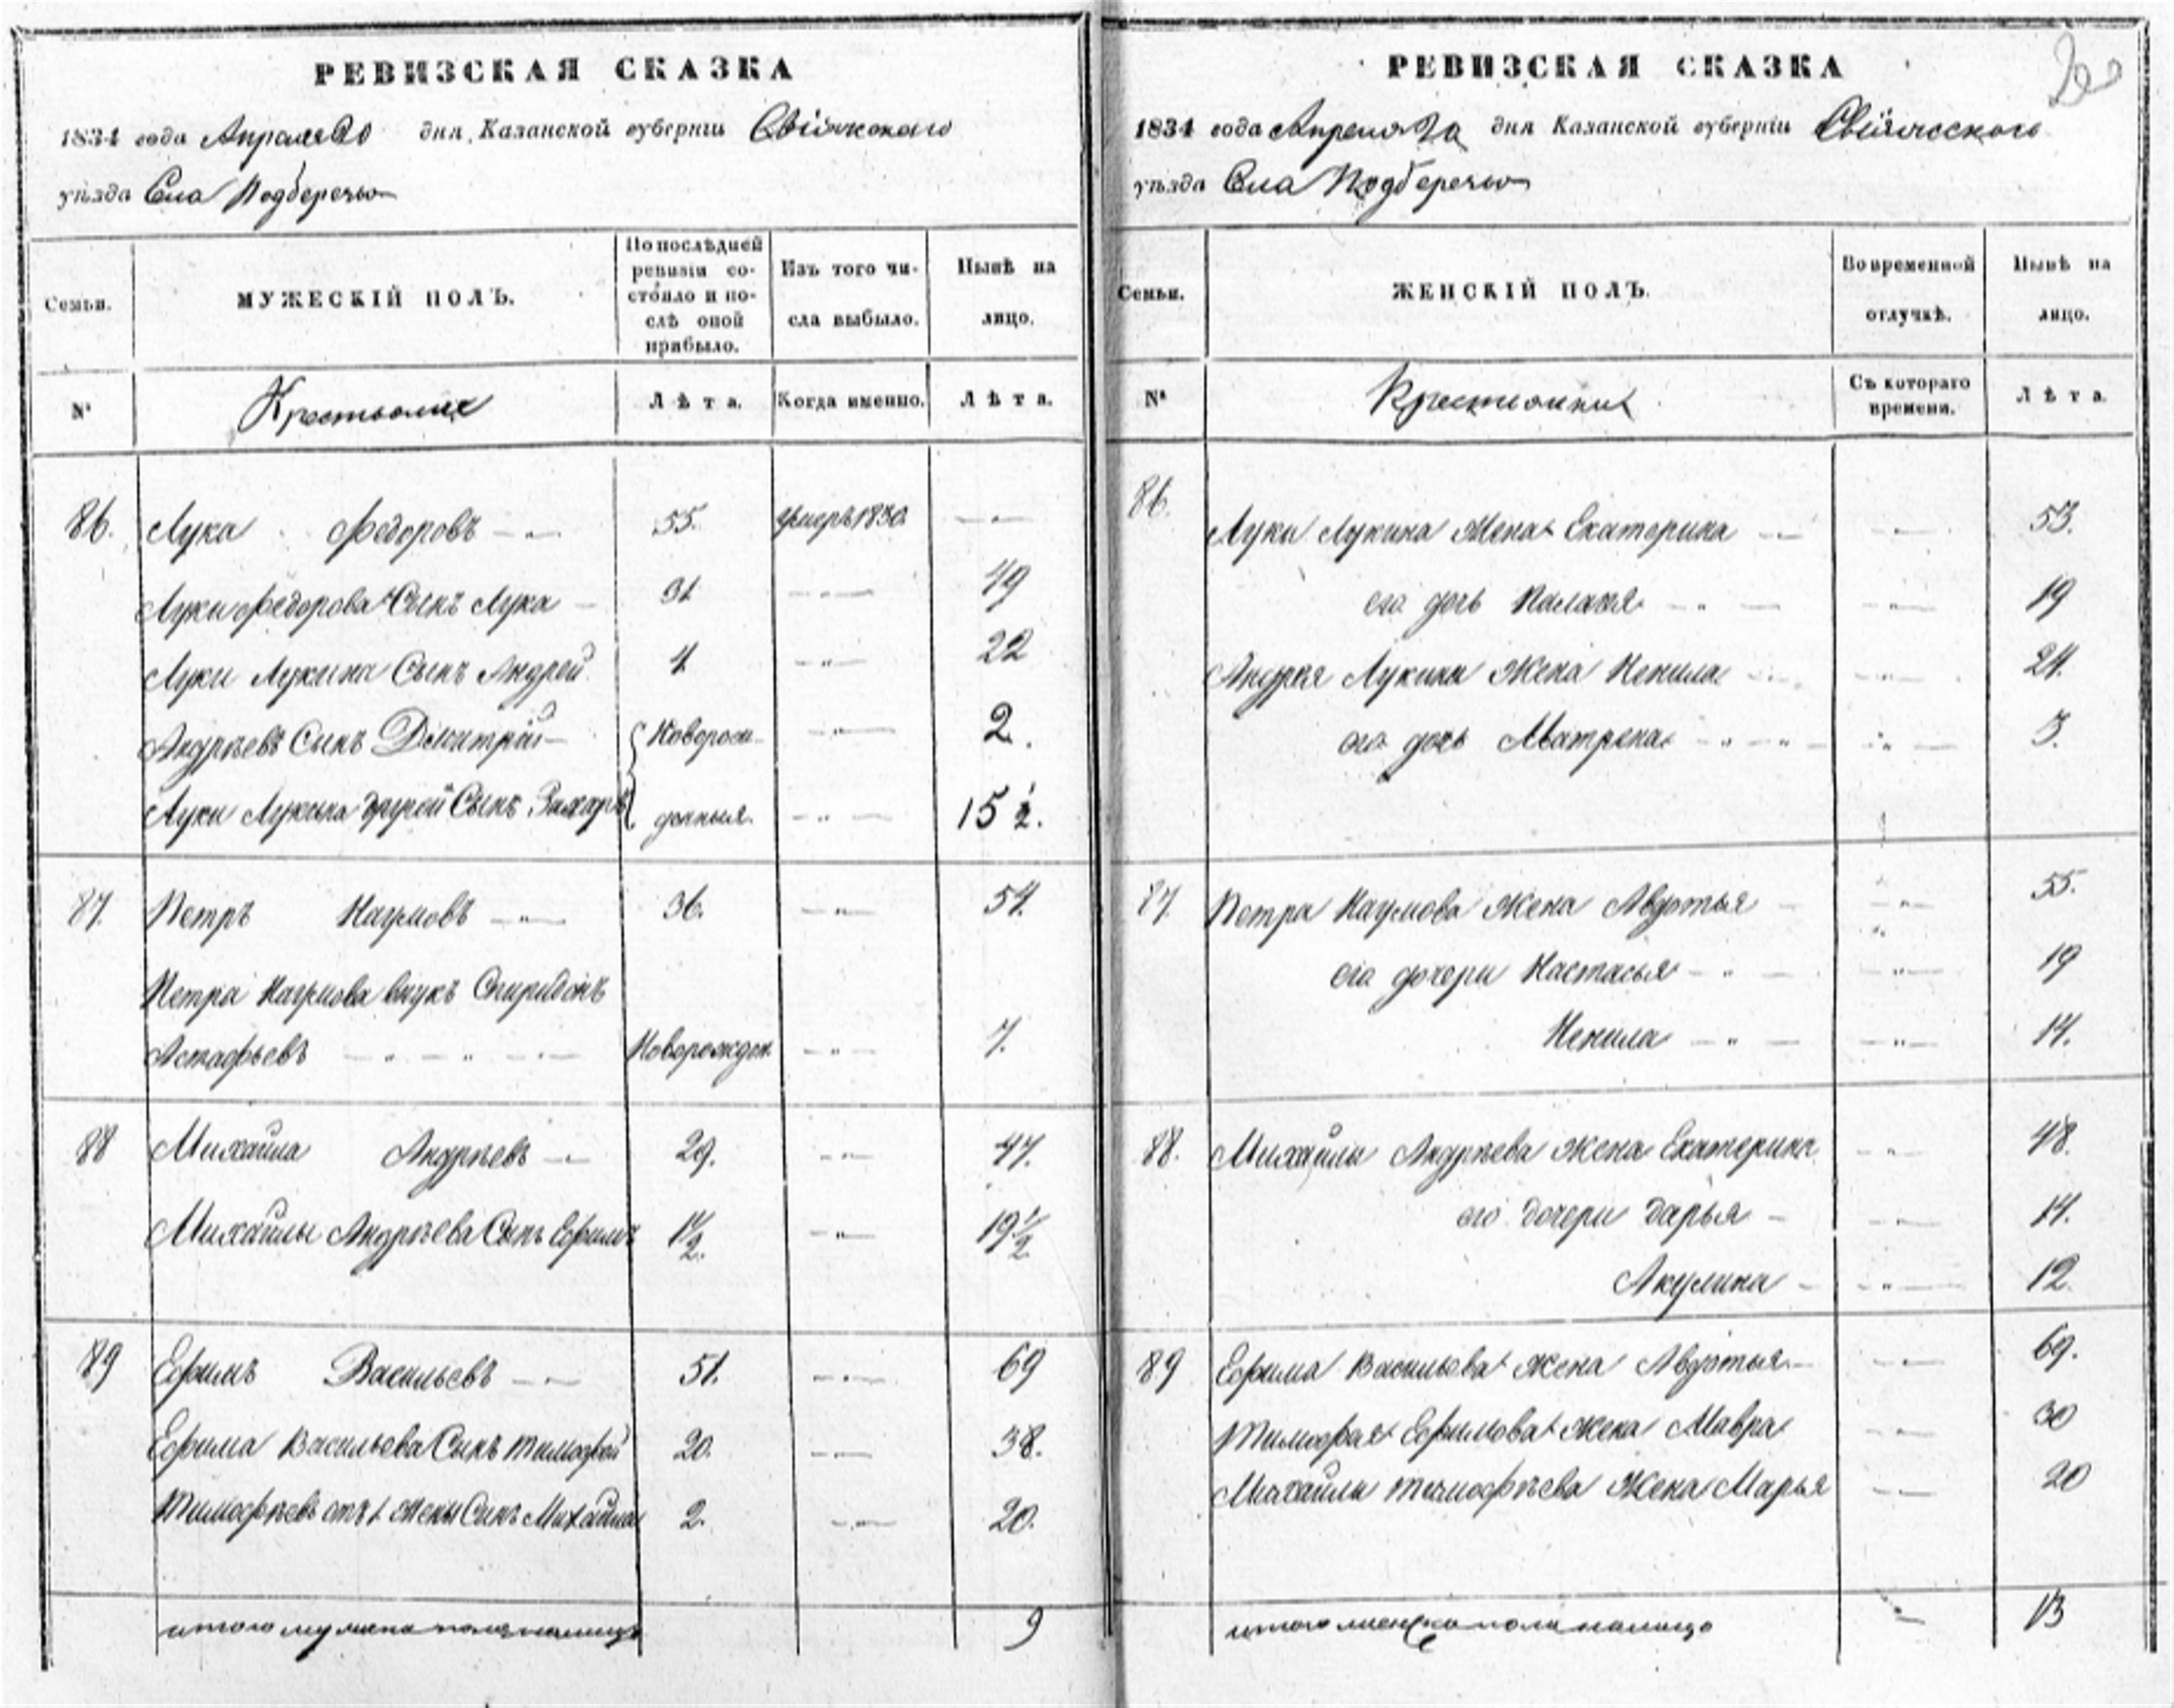 РЕВИЗСКАЯ СКАЗКА
1834 года Апреля 20 дня, Казанской губернiи Свiяжскаго
уѣзда Села Подберезья
Семьи.
МУЖЕСКIЙ ПОЛЪ.
По послѣдней ревизiи со-
стояло и по-
слѣ оной
прибыло.
Изъ того чи-
сла выбыло.
Нынѣ на
лицо.
№
Крестьяне
Лѣта.
Когда именно.
Лѣта.
86. Лука Федоровъ 55. умеръ 1830.
Луки Федорова Сынъ Лука 31 49
Луки Лукина Сынъ Андрей 4 22
Андрѣевъ Сынъ Дмитрiй Неворож- 2.
Луки Лукина другой Сынъ Захаръ денныя 15 ½.
87. Петръ Наумовъ 36. 54.
Петра Наумова внукъ Спиридонъ
Астафьевъ Новорожден. 7.
88 Михаила Андрѣевъ 29. 47.
Михайлы Андрѣева Сынъ Ефимъ 1½. 19½
89 Ефимъ Васильевъ 51. 69
Ефима Васильева Сынъ Тимофей 20. 38.
Тимофѣевъ отъ 1 жены Сынъ Михайла 2. 20.
итого мужеска пола налицо 9
РЕВИЗСКАЯ СКАЗКА
1834 года Апреля 20 дня Казанской губернiи Свiяжскаго
уѣзда Села Подберезья
Семьи.
ЖЕНСКIЙ ПОЛЪ.
Во временной
отлучкѣ.
Нынѣ на
лицо.
№
Крестьянки
Съ котораго
времени.
Лѣта.
86. Луки Лукина Жена Екатерина 53.
его дочь Палагея 19
Андрея Лукина Жена Ненила 24.
его дочь Матрена 3.
87. Петра Наумова Жена Авдотья 55.
его дочери Настасья 19
Ненила 14.
88. Михайлы Андрѣева жена Екатерина 48.
его дочери Дарья 14.
Акулина 12.
89 Ефима Васильева жена Авдотья 69.
Тимофея Ефимова жена Мавра 30
Михайлы Тимофѣева Жена Марья 20
итого женска пола налицо 13